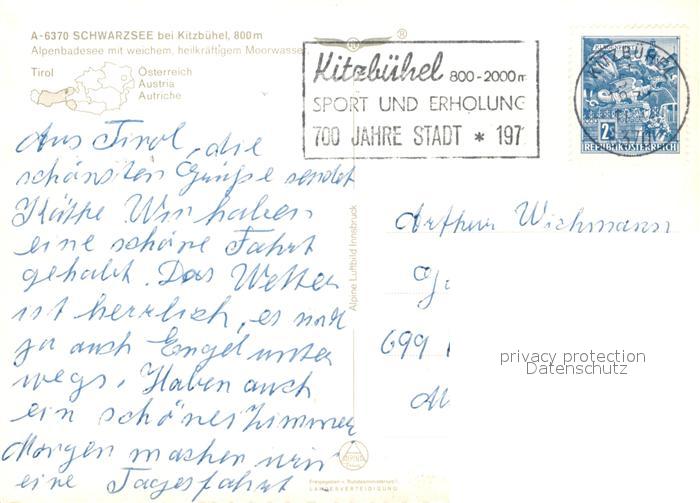 A-6370 SCHWARZSEE bei Kitzbühel, 800 m
Alpenbadesee mit weichem, heilkräftigem Moorwasser
Tirol
Österreich
Austria
Autriche
Kitzbühel 800-2000 m
SPORT UND ERHOLUNG
700 JAHRE STADT * 197
KITZBÜHEL
2
REPUBLIK ÖSTERREICH
Aus Tirol, die
schönsten Grüße sendet
Käthe Wir haben
eine schöne Fahrt
gehabt. Das Wetter
ist herrlich, es sind
ja auch Engel unter
wegs. Haben auch
ein schönes Zimmer
Morgen machen wir
eine Tagesfahrt
Alpine Luftbild Innsbruck
Arthur Wichmann
699
privacy protection
Datenschutz
LANDESVERTEIDIGUNG